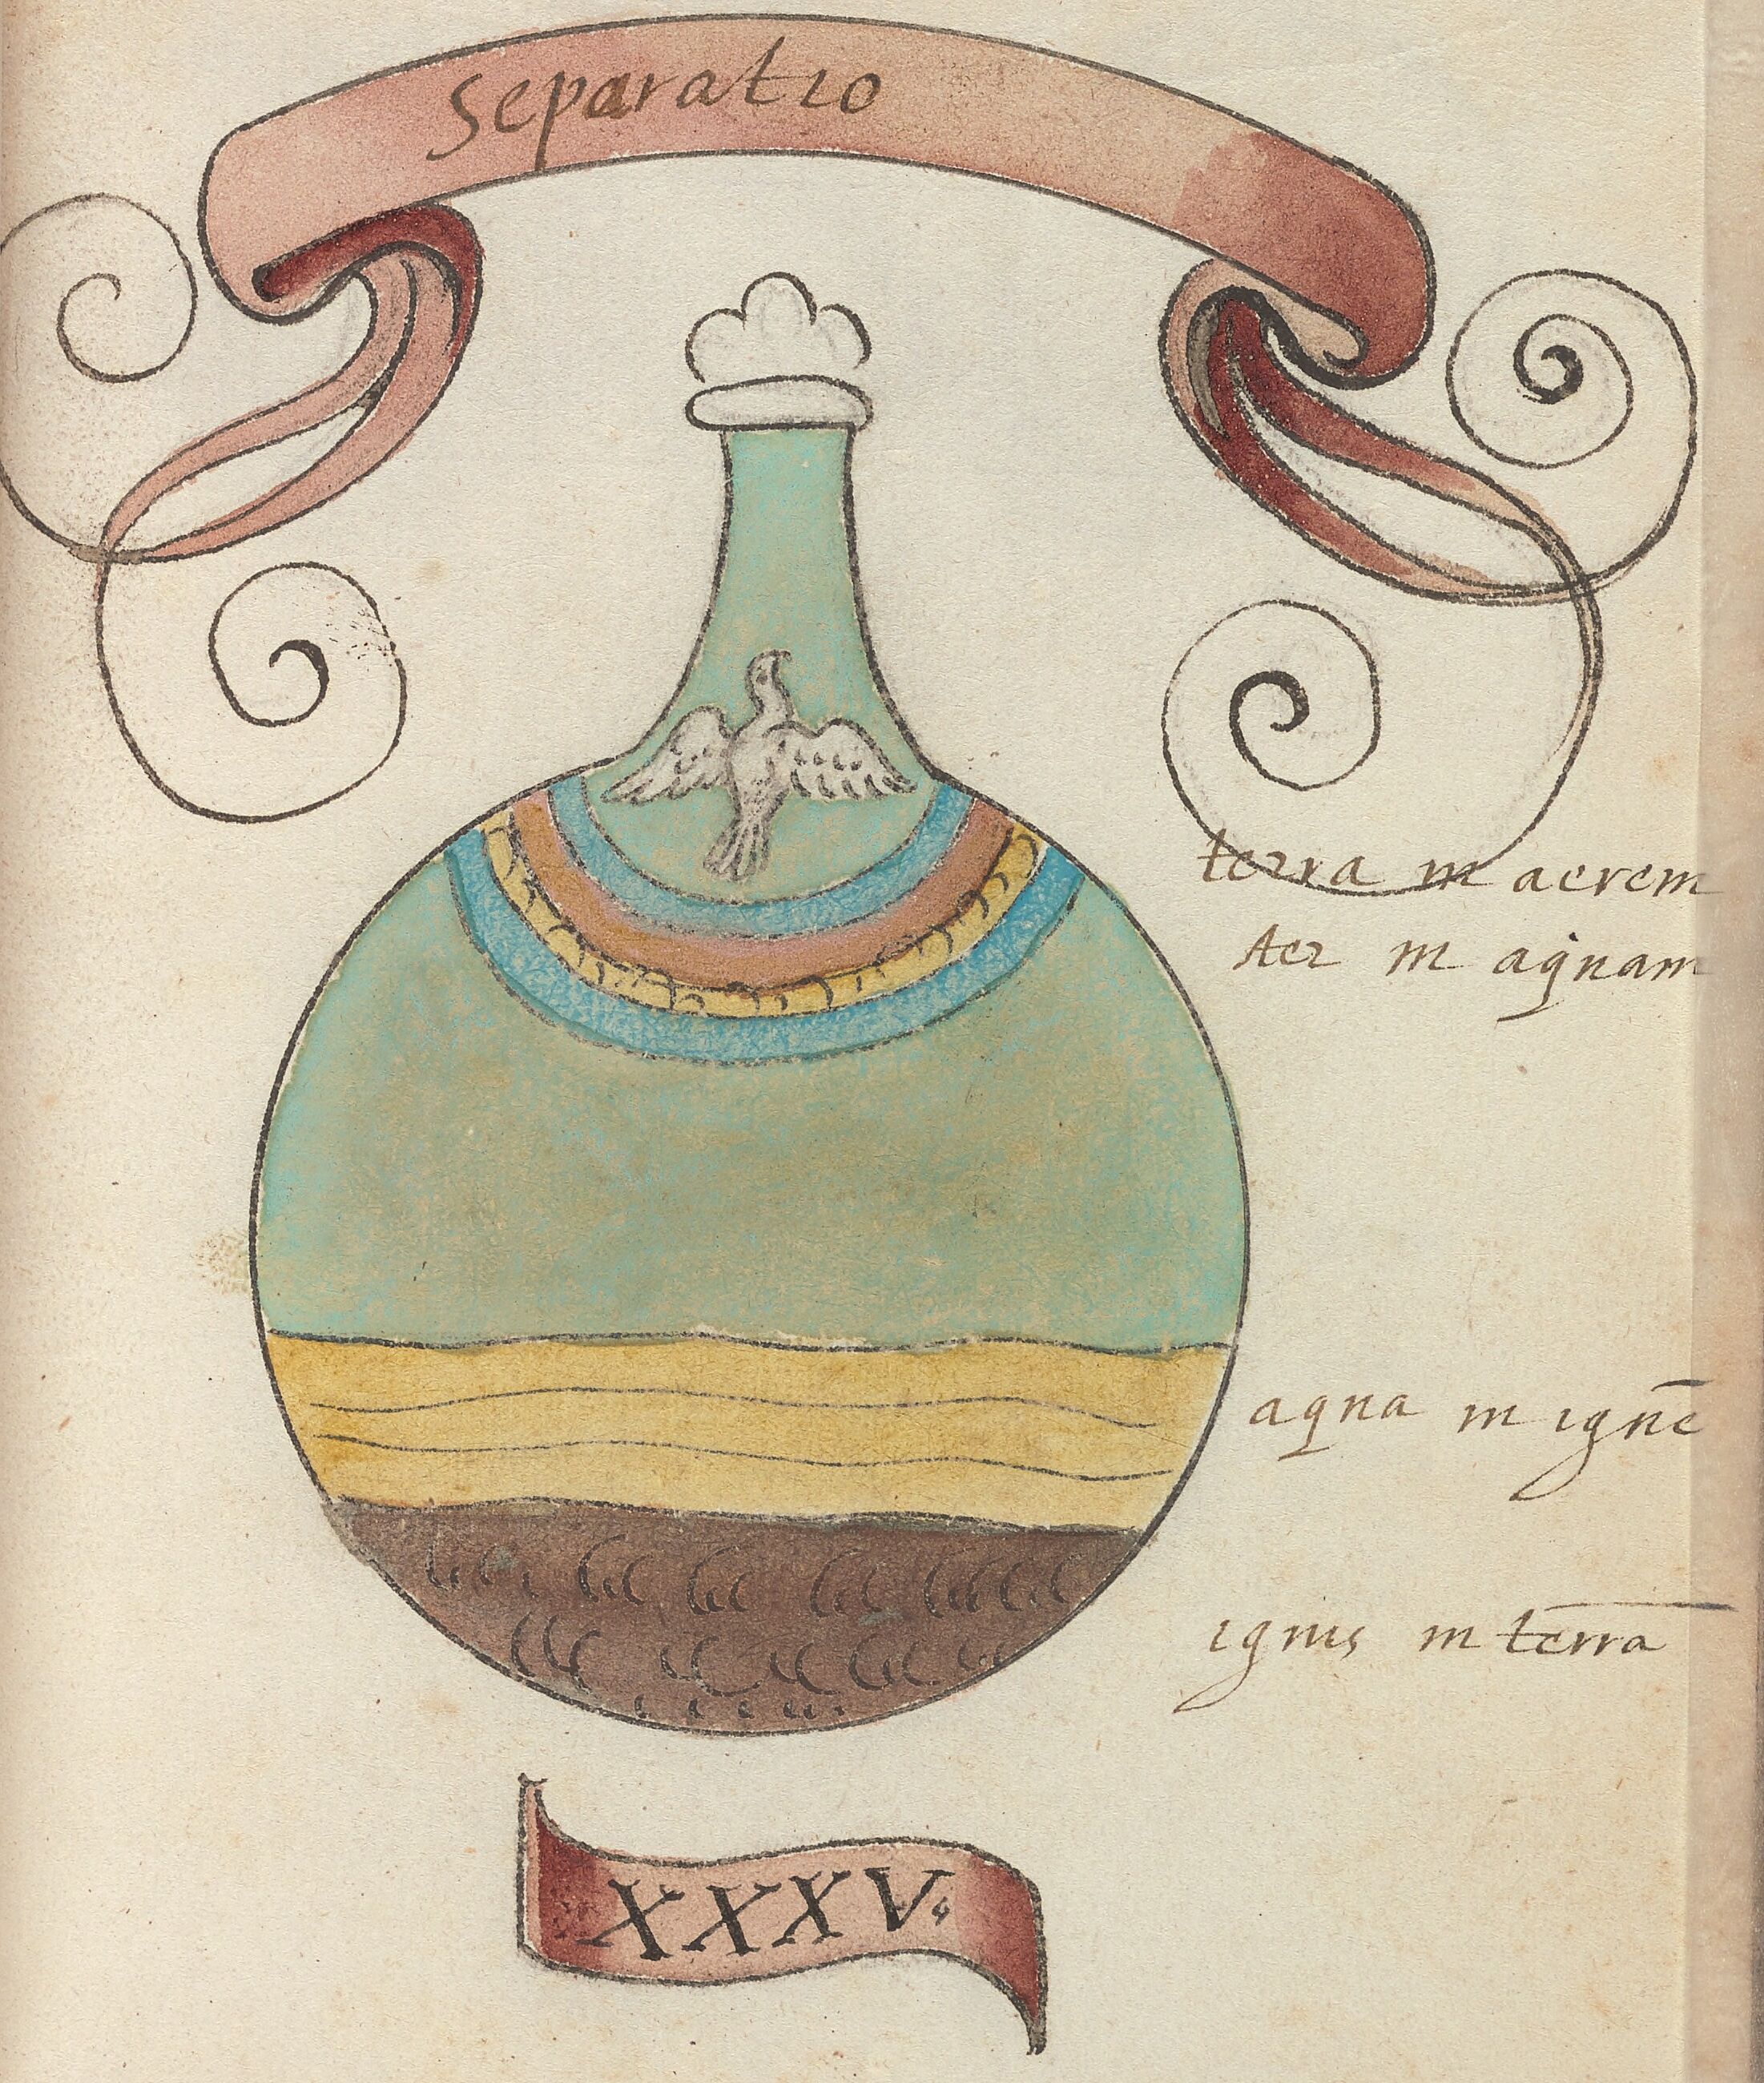 separatio
terra in aerem
Aer in aquam
aqua in ignē
ignis in terrā
XXXV.